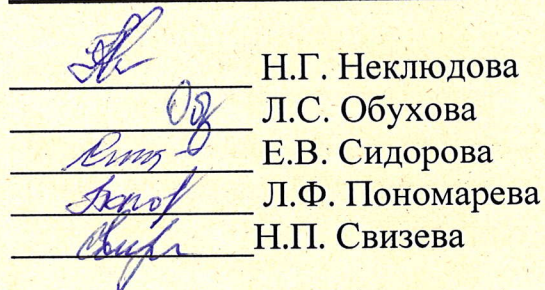 Н.Г. Неклюдова
Л.С. Обухова
Е.В. Сидорова
Л.Ф. Пономарева
Н.П. Свизева